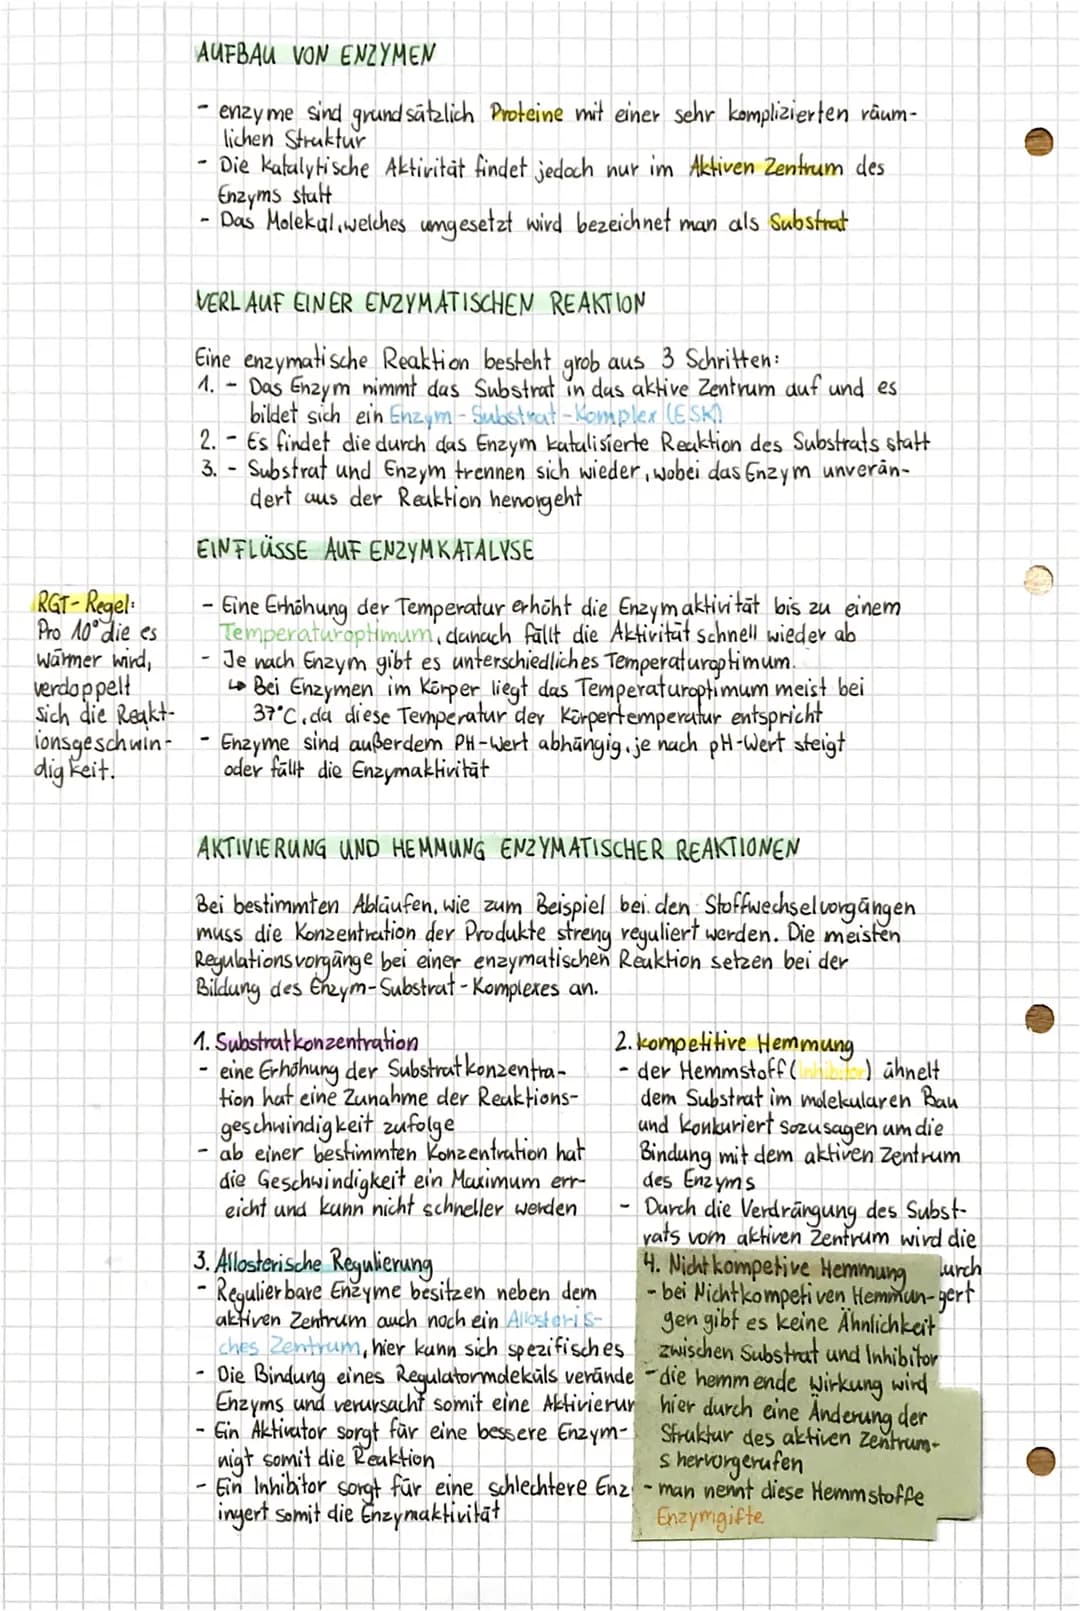 AUFBAU VON ENZYMEN
- enzyme sind grundsätzlich Proteine mit einer sehr komplizierten räum-
lichen Struktur
- Die katalytische Aktivität findet jedoch nur im Aktiven Zentrum des
Enzyms statt
- Das Molekül, welches umgesetzt wird bezeichnet man als Substrat
VERLAUF EINER ENZYMATISCHEN REAKTION
Eine enzymatische Reaktion besteht grob aus 3 Schritten:
1. - Das Enzym nimmt das Substrat in das aktive Zentrum auf und es
bildet sich ein Enzym-Substrat-Komplex (ESK)
2. - Es findet die durch das Enzym katalisierte Reaktion des Substrats statt
3. - Substrat und Enzym trennen sich wieder, wobei das Enzym unverän-
dert aus der Reaktion hervorgeht
EINFLÜSSE AUF ENZYMKATALYSE
RGT-Regel:
Pro 10° die es
wärmer wird,
verdoppelt
sich die Reakt-
ionsgeschwin-
digkeit.
- Eine Erhöhung der Temperatur erhöht die Enzymaktivität bis zu einem
Temperaturoptimum, danach fällt die Aktivität schnell wieder ab
- Je nach Enzym gibt es unterschiedliches Temperaturoptimum.
↳ Bei Enzymen im Körper liegt das Temperaturoptimum meist bei
37°C, da diese Temperatur der Körpertemperatur entspricht
- Enzyme sind außerdem PH-Wert abhängig, je nach pH-Wert steigt
oder fällt die Enzymaktivität
AKTIVIERUNG UND HEMMUNG ENZYMATISCHER REAKTIONEN
Bei bestimmten Abläufen, wie zum Beispiel bei den Stoffwechselvorgängen
muss die Konzentration der Produkte streng reguliert werden. Die meisten
Regulationsvorgänge bei einer enzymatischen Reaktion setzen bei der
Bildung des Enzym-Substrat-Komplexes an.
1. Substratkonzentration
- eine Erhöhung der Substratkonzentra-
tion hat eine Zunahme der Reaktions-
geschwindigkeit zufolge
- ab einer bestimmten Konzentration hat
die Geschwindigkeit ein Maximum err-
eicht und kann nicht schneller werden
2. kompetitive Hemmung
- der Hemmstoff (Inhibitor) ähnelt
dem Substrat im molekularen Bau
und konkuriert sozusagen um die
Bindung mit dem aktiven Zentrum
des Enzyms
- Durch die Verdrängung des Subst-
rats vom aktiven Zentrum wird die
3. Allosterische Regulierung
- Regulierbare Enzyme besitzen neben dem
aktiven Zentrum auch noch ein Allosteris-
ches Zentrum, hier kann sich spezifisches
- Die Bindung eines Regulatormoleküls verände
Enzyms und verursacht somit eine Aktivierun
- Ein Aktivator sorgt für eine bessere Enzym-
nigt somit die Reaktion
- Ein Inhibitor sorgt für eine schlechtere Enz
ingert somit die Enzymaktivität
4. Nichtkompetive Hemmung
- bei Nichtkompetiven Hemmun-
gen gibt es keine Ähnlichkeit
zwischen Substrat und Inhibitor
- die hemmende Wirkung wird
hier durch eine Änderung der
Struktur des aktiven Zentrum-
s hervorgerufen
- man nennt diese Hemmstoffe
Enzymgifte